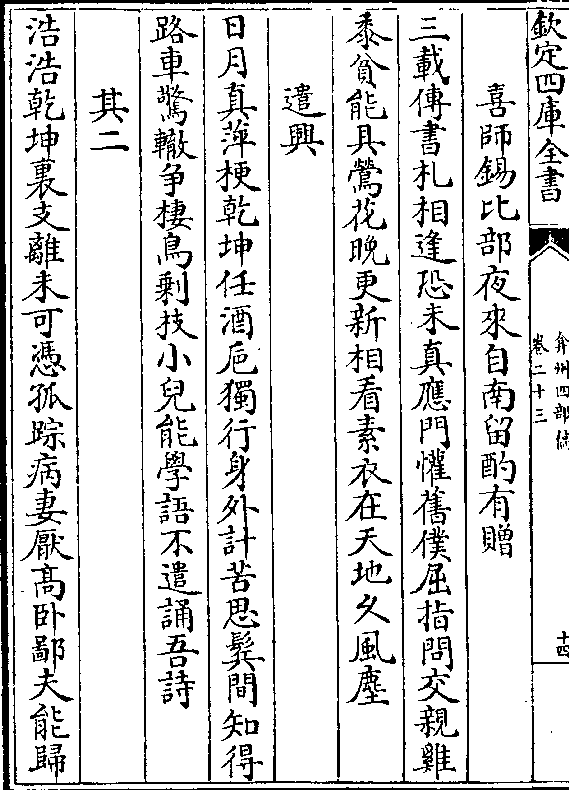 欽定四庫全書
弇州四部稿
卷二十三
十四
喜師錫比部夜來自南留酌有贈
三載傳書札相逢恐未真應門懽舊僕屈指問交親雞
黍貧能具鶯花晚更新相看素衣在天地久風塵
遣興
日月真萍梗乾坤任酒巵獨行身外計苦思鬂間知得
路車驚轍争棲鳥剩技小兒能學語不遣誦吾詩
其二
浩浩乾坤裏支離未可憑孤踪病妻厭髙卧鄙夫能歸